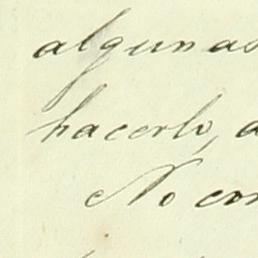 algunas
hacerlo,
No con